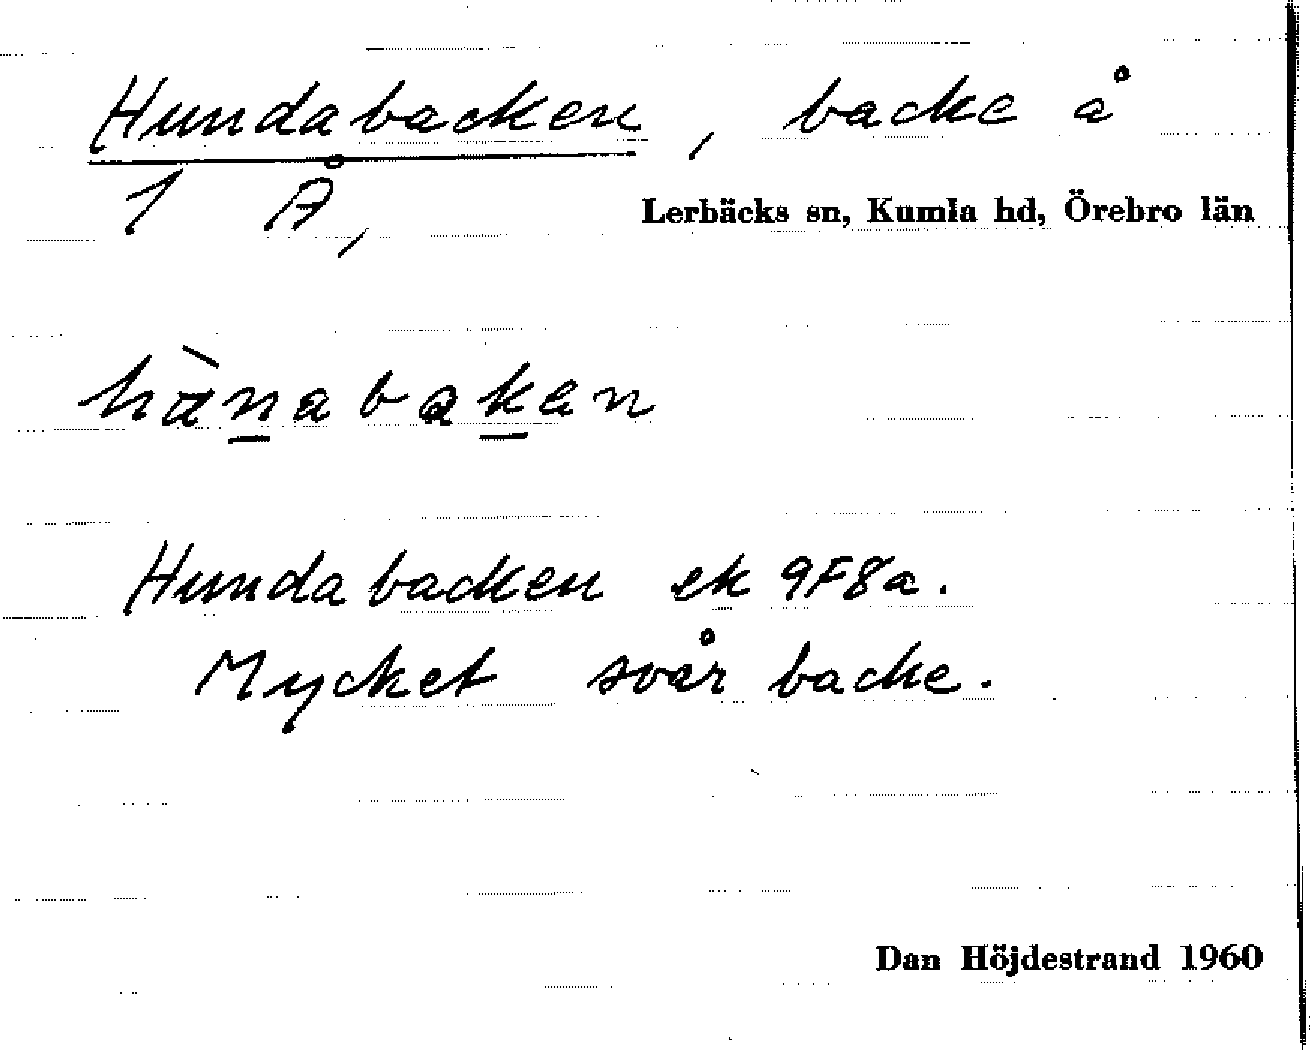 Hundabacken, backe å
1 Å, Lerbäcks sn, Kumla hd, Örebro län
hànabakan
Hundabacken ek 9F8a.
Mycket svår backe.
Dan Höjdestrand 1960